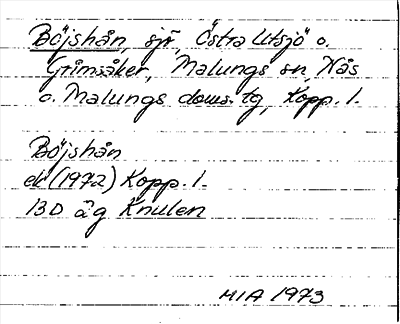 Böjshån, sjö, Östra Utsjö o.
Grimsåker, Malungs sn, Nås
o. Malungs doms. tg, Kopp. l.
Böjshån
ek (1972) Kopp. l.
13D äg Knulen
MIA 1973